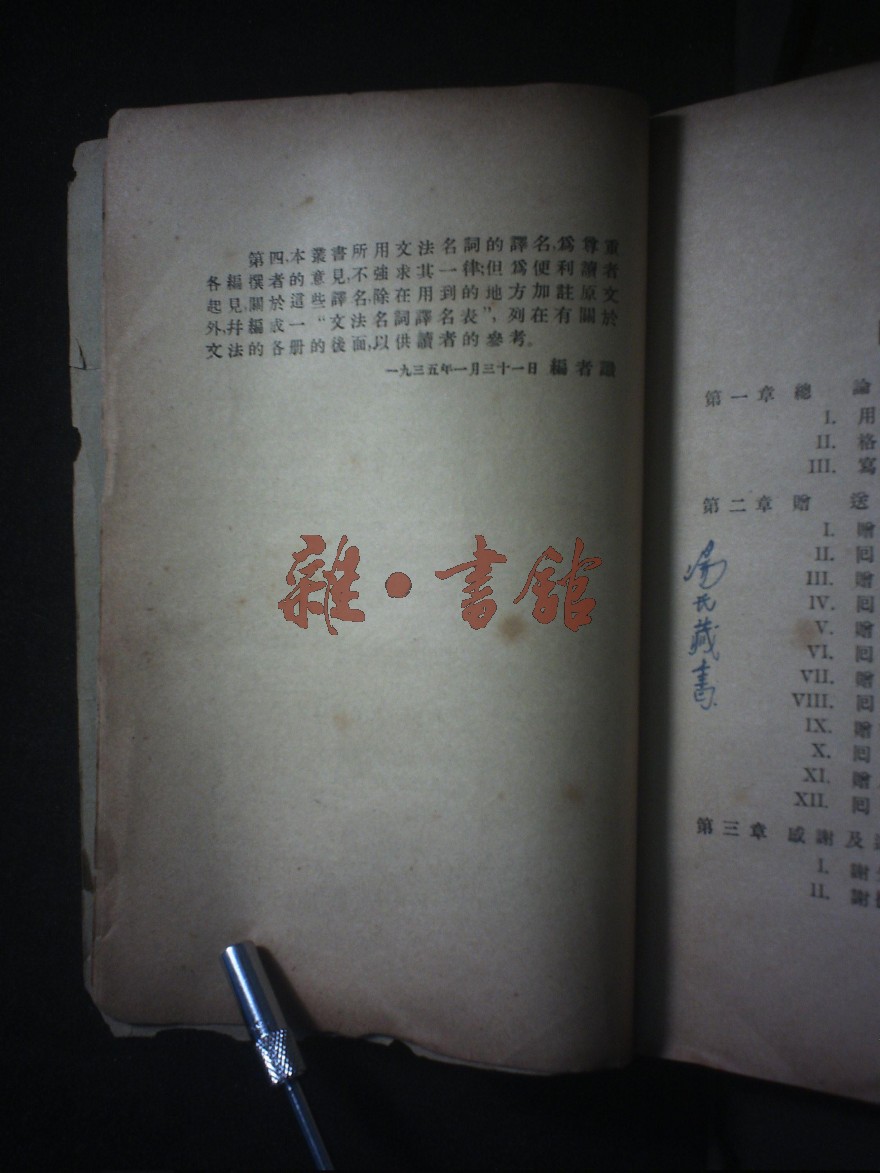 第四,本叢書所用文法名詞的譯名,爲尊重
各編撰者的意見,不強求其一律;但爲便利讀者
起見,關於這些譯名,除在用到的地方加註原文
外,幷編成一“文法名詞譯名表”,列在有關於
文法的各册的後面,以供讀者的參考。
一九三五年一月三十一日 編者識
雜·書館
第一章 總 論
I. 用
II. 格
III. 寫
第二章 贈 送
I. 贈
II. 回
III. 贈
IV. 回
V. 贈
VI. 回
VII. 贈
VIII. 回
IX. 贈
X. 回
XI. 贈
XII. 回
第三章 感謝及
I. 謝
II. 謝
氏藏書